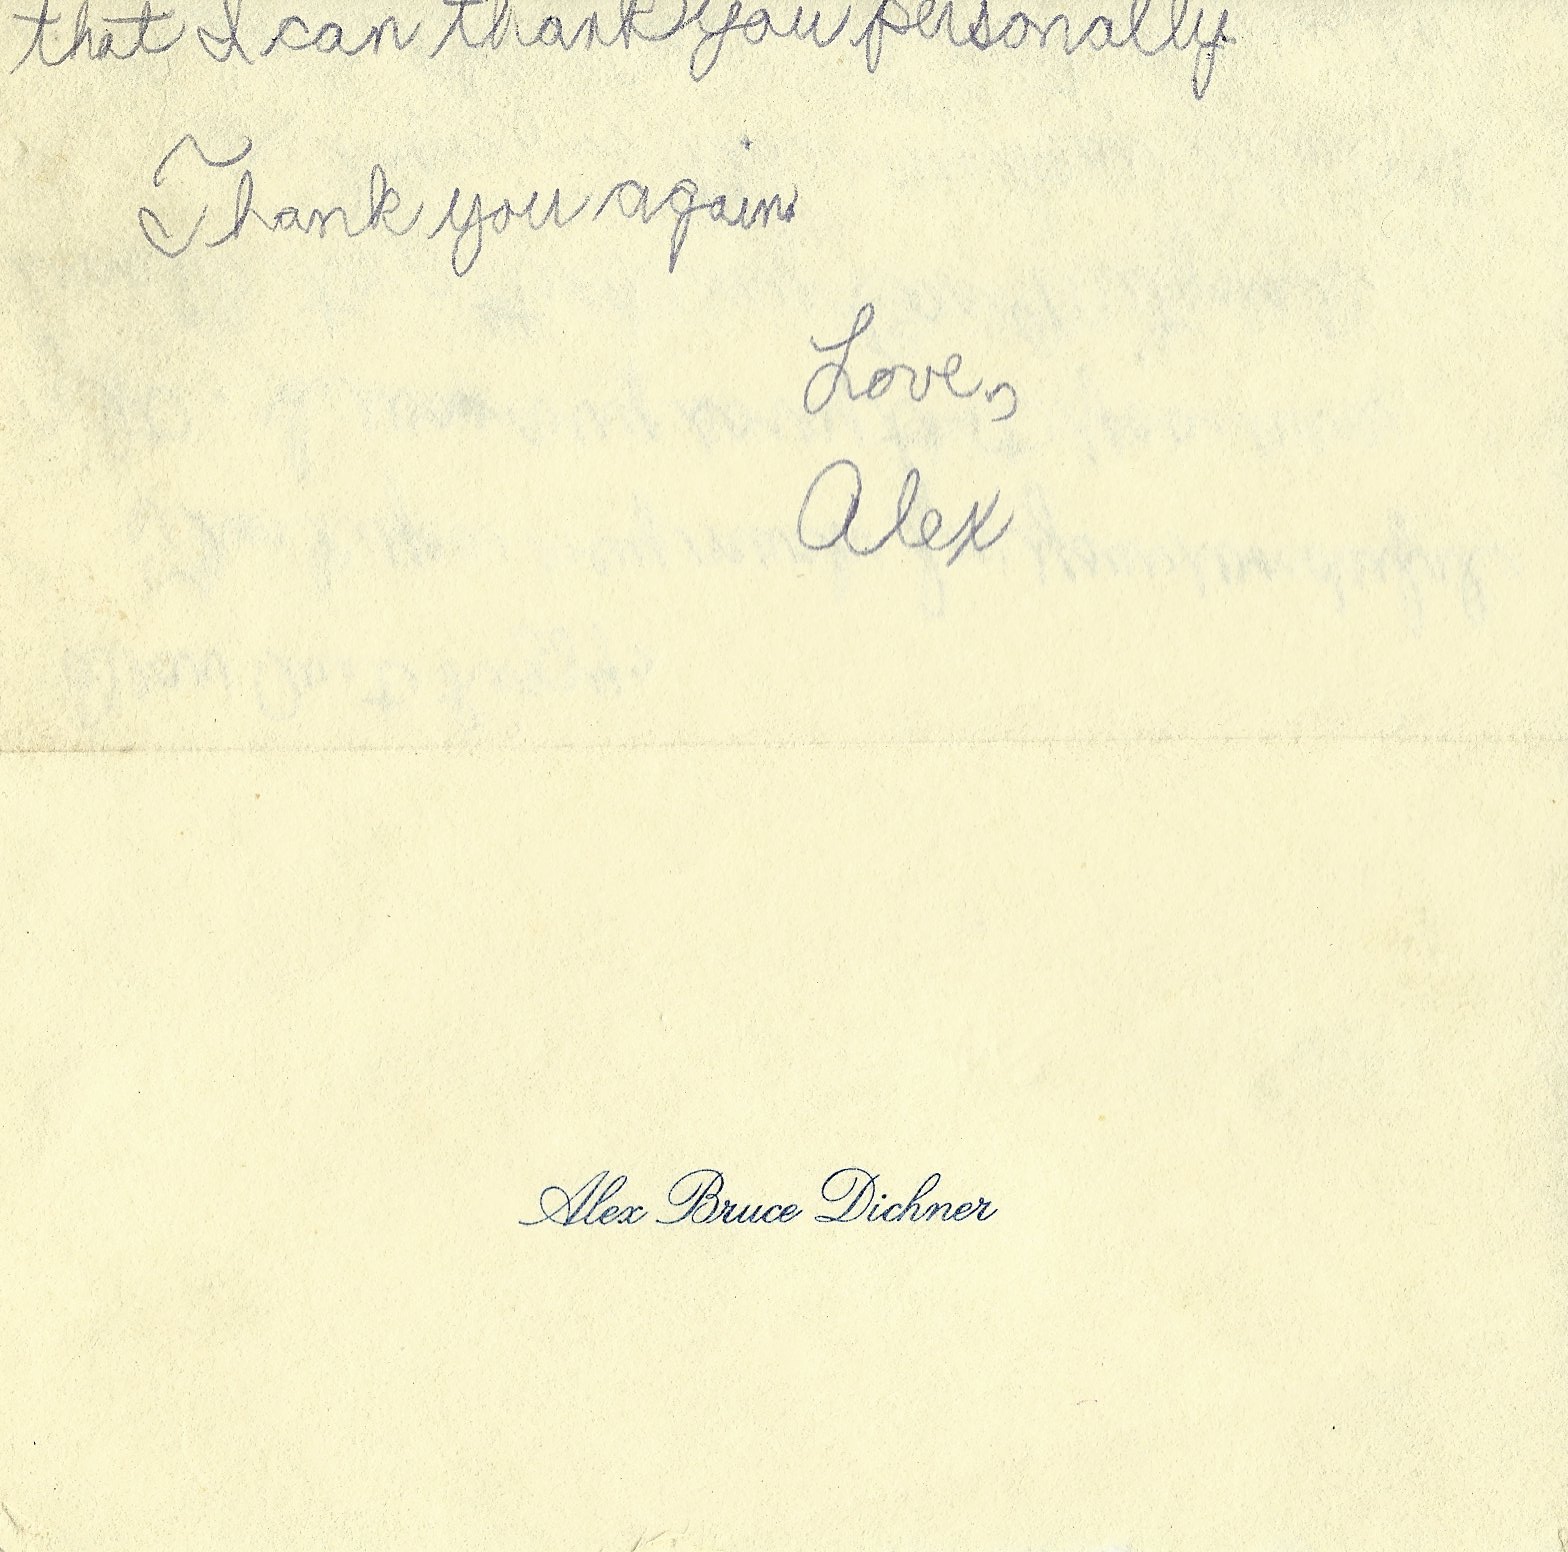 that I can thank you personally.
Thank you again.
Love,
Alex
Alex Bruce Dichner